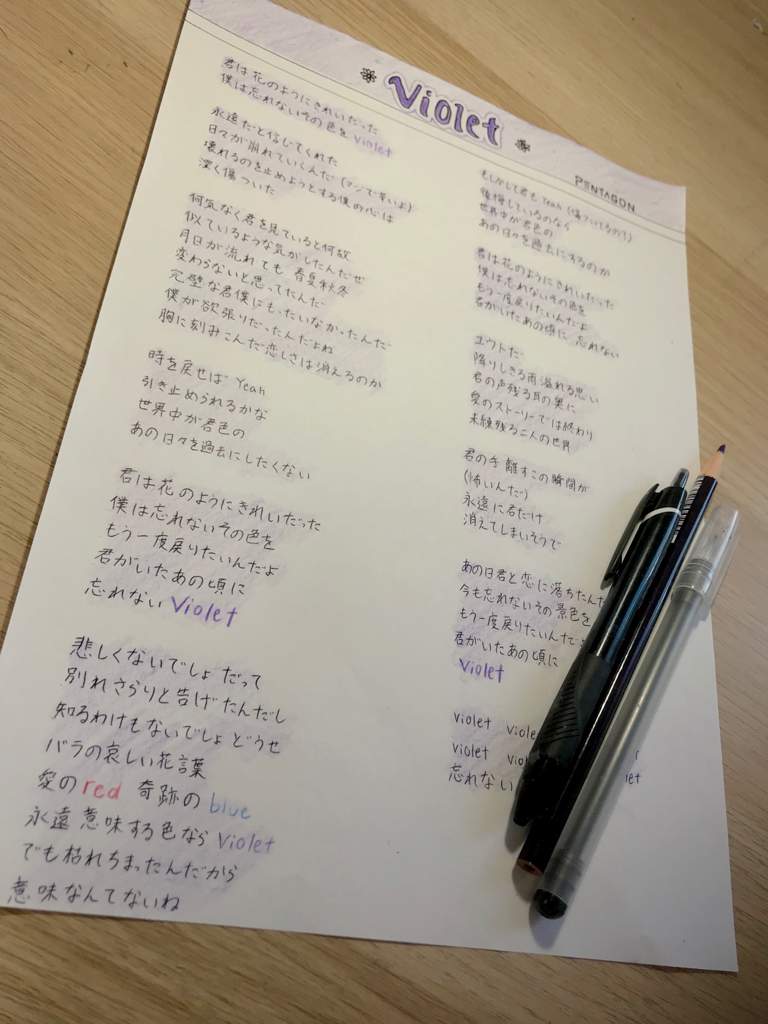 Violet
PENTAGON
君は花のようにきれいだった
僕は忘れないその色を Violet
永遠だと信じてくれた
日々が崩れていくんだ (マジで辛いよ)
壊れるのを止めようとする僕の心は
深く傷ついた
何気なく君を見ていると何故
似ているような気がしたんだぜ
月日が流れても 春夏秋冬
変わらないと思ってたんだ
完璧な君僕にもったいなかったんだ
僕が欲張りだったんだよね
胸に刻みこんだ恋しさは消えるのか
時を戻せば Yeah
引き止められるかな
世界中が君色の
あの日々を過去にしたくない
君は花のようにきれいだった
僕は忘れないその色を
もう一度戻りたいんだよ
君がいたあの頃に
忘れない Violet
悲しくないでしょ だって
別れさらりと告げたんだし
知るわけもないでしょ どうせ
バラの哀しい花言葉
愛の red 奇跡の blue
永遠 意味する色なら Violet
でも枯れちまったんだから
意味なんてないね
もしかして君も Yeah
後悔しているのなら
世界中が君色の
あの日々を過去にするのか
君は花のようにきれいだった
僕は忘れないその色を
もう一度戻りたいんだよ
君がいたあの頃に 忘れない
ユウトだ
降りしきる雨 溢れる思い
君の声残る耳の奥に
愛のストーリーでは終わり
未練残る二人の世界
君の手 離すこの瞬間が
(怖いんだ)
永遠に君だけ
消えてしまいそうで
あの日君と恋に落ちたんだ
今も忘れないその景色を
もう一度戻りたいんだ
君がいたあの頃に
Violet
Violet
Violet
忘れない